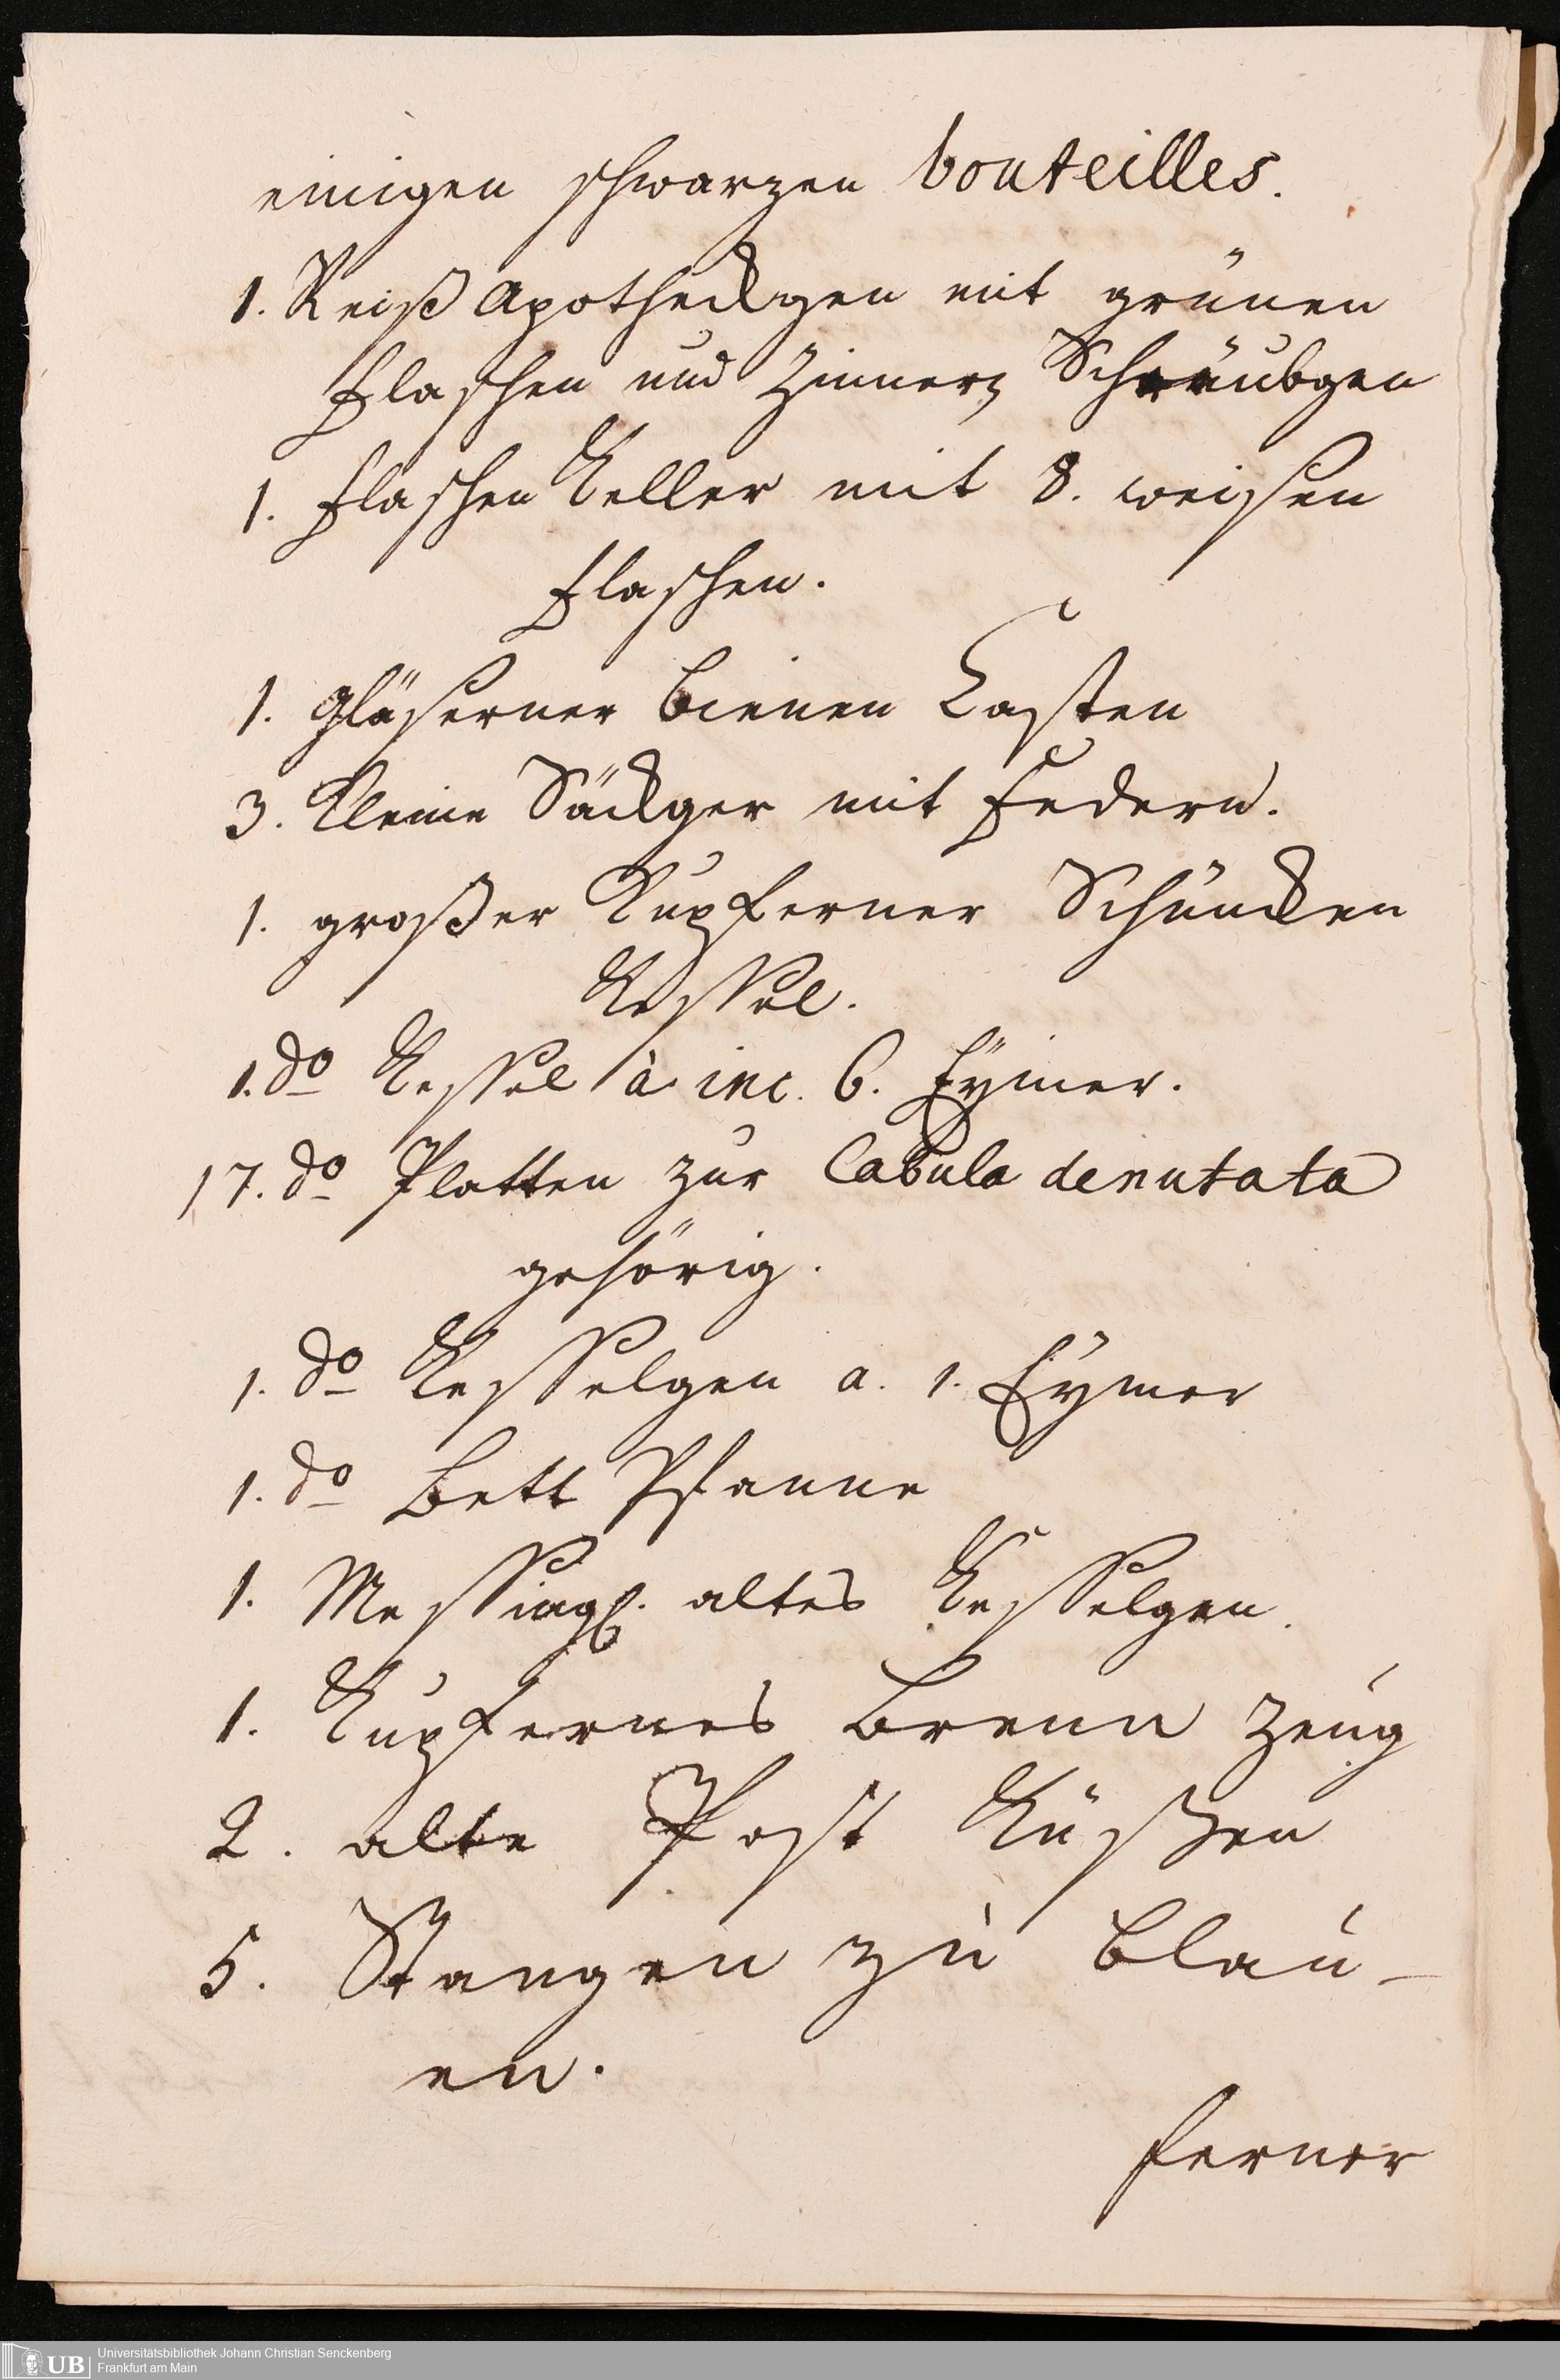 einigen schwarzen bouteilles.
1. Reiß Apotheckgen mit grünen
Flaschen und Zinnern Schräubgen
1. Flaschen Keller mit 8. weisen
Flaschen.
1. Gläserner Bienen Casten
3. Kleine Säckger mit Federn.
1. großer Kupferner Schüncken
Kessel.
1. do Kessel à inc. 6. Eÿmer.
17. do Platten zur Tabula denutata
gehörig.
1. do Kesselgen a. 1. Eÿmer
1. do Bett Pfanne
1. Messingh. altes Kesselgen.
1. Kupfernes Brenn Zeug
2. alte Post Küßen
5. Stangen zu Blau-
en.
ferner
Universitätsbibliothek Johann Christian Senckenberg
Frankfurt am Main
UB